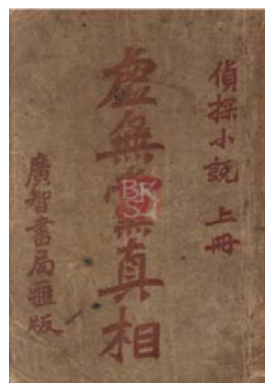 偵探小說 上冊
虛無黨真相
廣智書局滙版
BK
S